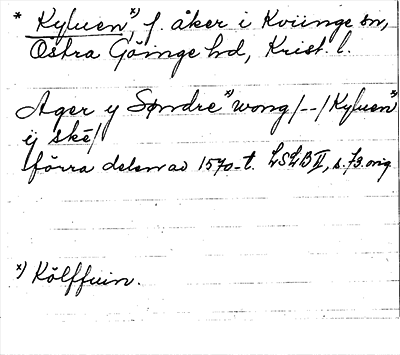 * Kyluen x), f. åker i Kviinge sn,
Östra Göinge hd, Krist. l.
Ager y Søndre x) wong /--/ Kyluen x)
ij skē/
förra delen av 1570-t. LSLB II, s. 73. orig
x) Kölffuin.